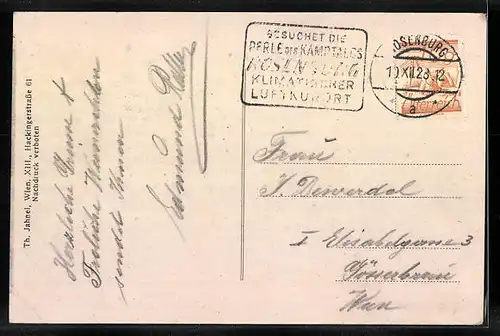 Th. Jahnel, Wien, XIII., Hackingerstraße 61
Nachdruck verboten
Herzliche Grüße &
Fröhliche Weihnachten
sendet Ihnen
Edmund
BESUCHET DIE
PERLE DES KAMPTALES
ROSENBURG
KLIMATISCHER
LUFTKURORT
ROSENBURG
XII.28.12
a
Frau
J.
I Elisabethgasse 3
Wien